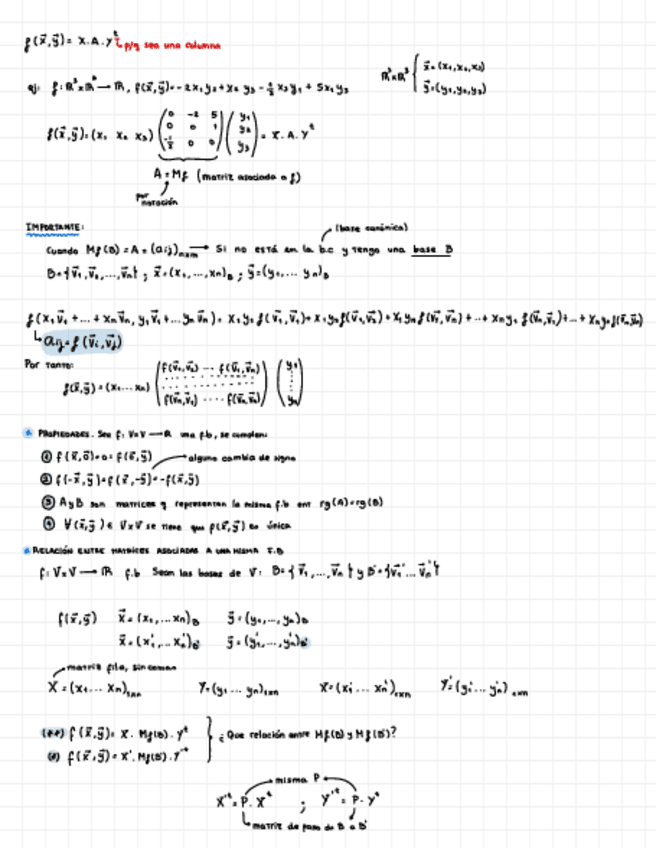 f(x⃗,y⃗) = X·A·Yᵗ ↳ p/q sea una columna
ej: f: ℝ³×ℝ³ → ℝ, f(x⃗,y⃗) = -2x₁y₂ + x₂y₃ - ½x₃y₁ + 5x₁y₃
ℝ³×ℝ³ { x⃗=(x₁,x₂,x₃)
y⃗=(y₁,y₂,y₃)
f(x⃗,y⃗) = (x₁ x₂ x₃) (0 -2 5; 0 0 1; -½ 0 0) (y₁; y₂; y₃) = X·A·Yᵗ
A = Mf (matriz asociada a f)
por notación
IMPORTANTE:
(base canónica)
Cuando Mf(B) = A = (aij)nxn → Si no está en la bc y tengo una base B
B={v⃗₁,v⃗₂,...,v⃗n} ; x⃗=(x₁,...,xn)B ; y⃗=(y₁,...yn)B
f(x₁v⃗₁+...+xnv⃗n, y₁v⃗₁+...ynv⃗n) = x₁y₁f(v⃗₁,v⃗₁)+x₁y₂f(v⃗₁,v⃗₂)+x₁ynf(v⃗₁,v⃗n)+...+xny₁f(v⃗n,v⃗₁)+...+xnynf(v⃗n,v⃗n)
↳ aij=f(v⃗i,v⃗j)
Por tanto:
f(x⃗,y⃗)=(x₁...xn) (f(v⃗₁,v⃗₁) ... f(v⃗₁,v⃗n); f(v⃗n,v⃗₁) .... f(v⃗n,v⃗n)) (y₁ ⋮ yn)
PROPIEDADES. Sea f: V×V → ℝ una f.b, se cumplen:
① f(x⃗,0⃗)=0=f(0⃗,y⃗) alguno cambia de signo
② f(-x⃗,y⃗)=f(x⃗,-y⃗)=-f(x⃗,y⃗)
③ A y B son matrices y representan la misma f.b ent rg(A)=rg(B)
④ ∀(x⃗,y⃗) ∈ V×V se tiene que f(x⃗,y⃗) es única
RELACIÓN ENTRE MATRICES ASOCIADAS A UNA MISMA F.B
f: V×V → ℝ f.b Sean las bases de V: B={v⃗₁,...,v⃗n} y B'={v⃗₁'...v⃗n'}
f(x⃗,y⃗) x⃗=(x₁,...xn)B y⃗=(y₁,...,yn)B
x⃗=(x₁',...xn')B' y⃗=(y₁',...,yn')B'
matriz fila, sin comas
X=(x₁...xn)₁ₓn Y=(y₁...yn)₁ₓn X'=(x₁'...xn')₁ₓn Y'=(y₁'...yn')₁ₓn
(**) f(x⃗,y⃗)= X·Mf(B)·Yᵗ } ¿Que relación entre Mf(B) y Mf(B')?
(*) f(x⃗,y⃗)= X'·Mf(B')·Y'ᵗ
misma P
X'ᵗ=P·Xᵗ ; Y'ᵗ=P·Yᵗ
matriz de paso de B a B'